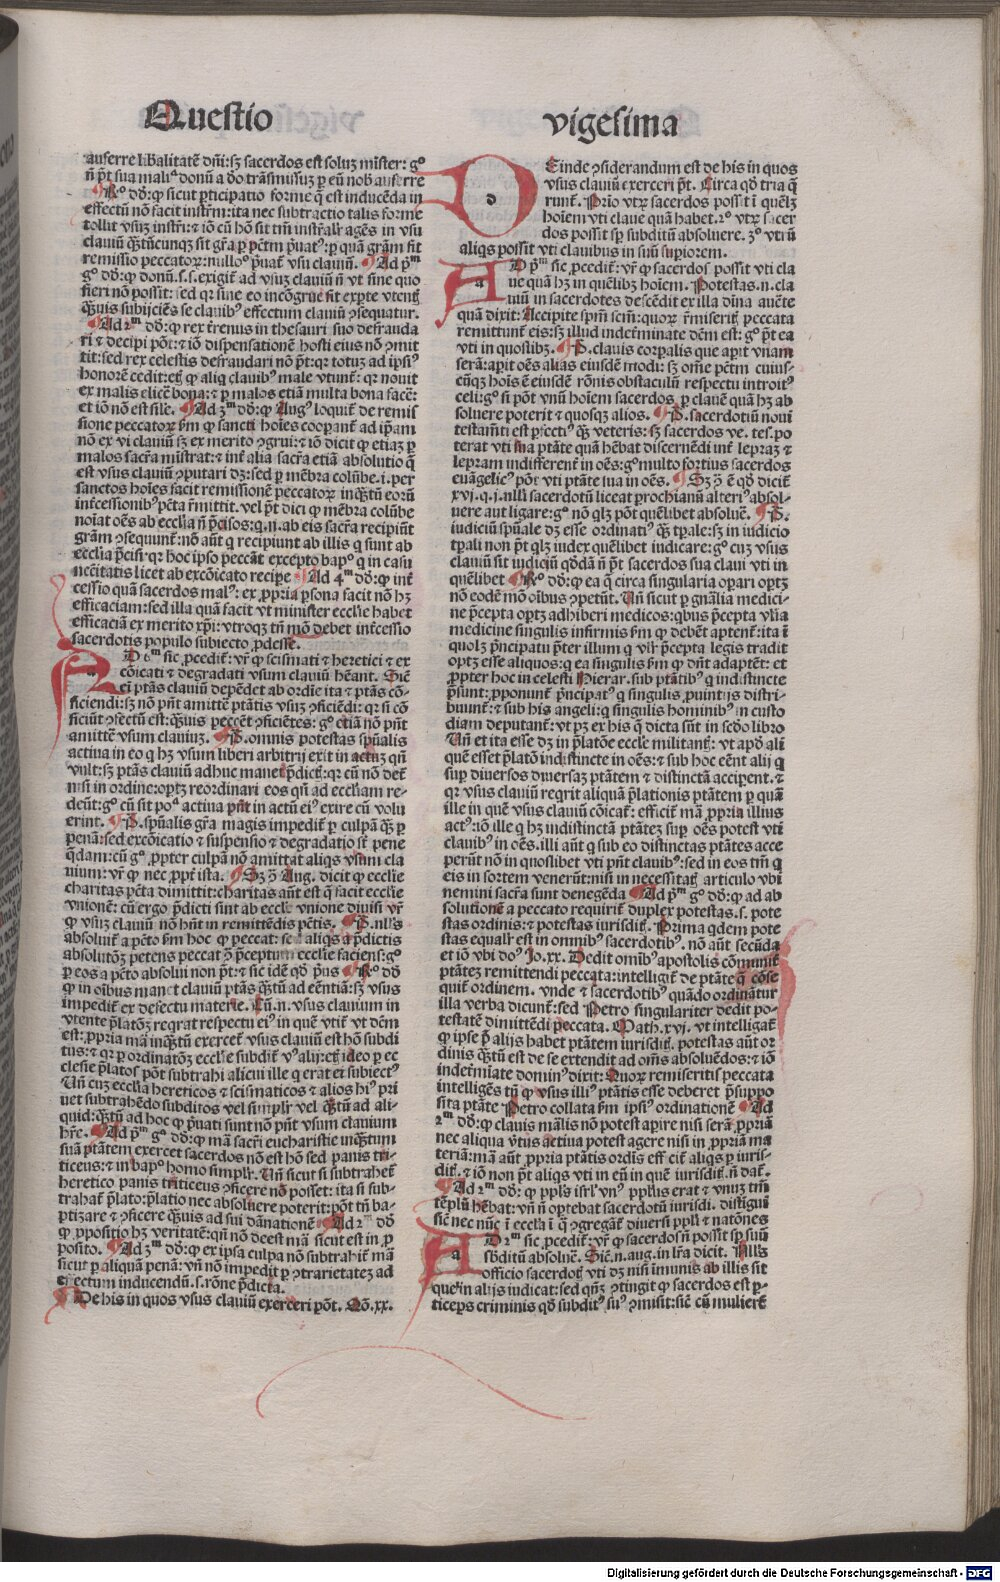 Questio
vigesima
auferre libalitatē dñi: sʒ sacerdos est soluʒ mĩster: gº
ñ p̃t sua malᵃ donũ a đo trãsmissuʒ p eũ nob̃ auferre
¶ Rº dõ: ꝙ sicut pticipatio forme q̃ est inducẽda in
effectũ nõ facit instrm̃: ita nec subtractio talis forme
tollit vsuʒ instr̃i: ⁊ iõ cũ hõ sit tm̃ instr̃alr̃ agẽs in vsu
clauiũ q̃ʒtũcunqʒ sit gr̃a p pctm̃ p̃uatꝰ: p quã gram̃ fit
remissio peccatoꝝ: nulloº p̃uat̃ vsu clauiũ. ¶ Ad pᵐ
gº dõ: ꝙ donũ.s.s. exigit̃ ad vsuʒ clauiũ ñ vt sine quo
fieri nõ possit: sed qꝛ sine eo incõgrue fit ex pte vtent̃
q̃ʒuis subijciẽs se clauibꝰ effectum clauiũ ꝯsequatur.
¶ Ad 2ᵐ dõ: ꝙ rex tr̃enus in thesauri suo defrauda
ri ⁊ decipi põt: ⁊ iõ dispensationẽ hosti eius nõ ꝯmit
tit: sed rex celestis defraudari nõ p̃t: qꝛ totuʒ ad ipsiꝰ
honorẽ cedit: et̃ ꝙ aliq̃ clauibꝰ male vtunt̃: qꝛ nouit
ex malis elicẽ bona: ⁊ p malos etiã multa bona facẽ:
et iõ nõ est sil̃e. ¶ Ad 3ᵐ dõ: ꝙ Augꝰ loquit̃ de remis
sione peccatoꝝ ẜm ꝙ sancti hoĩes coopant̃ ad ip̃am
nõ ex vi clauiũ sʒ ex merito ꝯgrui: ⁊ iõ dicit ꝙ etiaʒ p
malos sacr̃a mĩstrat: ⁊ int̃ alia sacr̃a etiã absolutio q̃
est vsus clauiũ ꝯputari dʒ: sed p mẽbra colũbe.i. per
sanctos hoĩes facit remissionẽ peccatoꝝ inq̃ʒtũ eorũ
int̃cessionibꝰ pctã r̃mittit. vel p̃t dici ꝙ mẽbra colũbe
noĩat oẽs ab eccl̃ia ñ p̃cisos: q.n. ab eis sacr̃a recipiũt
gram̃ ꝯsequunt̃: nõ aut̃ q recipiunt ab illis q sunt ab
eccl̃ia p̃cisi: qꝛ hoc ipso peccãt excepto bapº q in casu
nccĩtatis licet ab excõicato recipe ¶ Ad 4ᵐ dõ: ꝙ int̃
cessio quã sacerdos malꝰ: ex ꝓpria psona facit nõ hʒ
efficaciam: sed illa quã facit vt minister eccl̃ie habet
efficaciã ex merito xp̃i: vtroqʒ tñ mõ debet int̃cessio
sacerdotis populo subiecto ꝓdesse.
AD 6ᵐ sic ꝓcedit̃: vr̃ ꝙ scismati ⁊ heretici ⁊ ex
cõicati ⁊ degradati vsum clauiũ hẽant. Sic̃
ei ptãs clauiũ depẽdet ab ordĩe ita ⁊ ptãs cõ
ficiendi: sʒ nõ pñt amittẽ ptãtis vsuʒ ꝯficiẽdi: qꝛ si cõ
ficiũt ꝯfectũ est: q̃ʒuis peccẽt ꝯficiẽtes: gº etiã nõ pñt
amittẽ vsum clauiuʒ. ¶ P̃. omnis potestas sp̃ualis
actiua in eo q hʒ vsum liberi arbitrij exit in actuʒ qñ
vult: sʒ ptãs clauiũ adhuc manet p̃dict̃: qꝛ cũ nõ det̃
nisi in ordine: optʒ reordinari eos qñ ad eccl̃iam re-
deũt: gº cũ sit poᵃ actiua pñt in actũ eiꝰ exire cũ volu
erint. ¶ P̃. sp̃ualis gr̃a magis impedit̃ p culpã q̃ʒ p
penã: sed excõicatio ⁊ suspensio ⁊ degradatio st̃ pene
q̃dam: cũ gº ꝓpter culpã nõ amittat aliqs vsum cla
uium: vr̃ ꝙ nec ꝓpt̃ ista. ¶ Sʒ ꝯ̃ Aug. dicit ꝙ eccl̃ie
charitas pctã dimittit: charitas aut̃ est q̃ facit eccl̃ie
vnionẽ: cũ ergo p̃dicti sint ab eccl̃e vnione diuisi vr̃
ꝙ vsuʒ clauiũ nõ hñt in remittẽdis pctĩs. ¶ P̃. nll̃s
absoluit̃ a pctõ ẜm hoc ꝙ peccat: sed aliqs a p̃dictis
absolutõʒ petens peccat ꝯ̃ p̃ceptum eccl̃ie faciens: gº
p eos a pctõ absolui non p̃t: ⁊ sic idẽ qð p̃us ¶ Rº dõ
ꝙ in oĩbus manet clauiũ ptãs q̃ʒtũ ad eẽntiã: sʒ vsus
impedit̃ ex defectu materie. Cũ.n. vsus clauium in
vtente p̃latõʒ reqrat respectu eiꝰ in quẽ vtit̃ vt dcm̃
est: ꝓpria mã inq̃ʒtũ exercet̃ vsus clauiũ est hõ subdi
tus: ⁊ qꝛ p ordinatõʒ eccl̃ie subdit̃ vꝰ alij: et̃ ideo p ec
clesie p̃latos põt subtrahi alicui ille q erat ei subiectꝰ
Vñ cuʒ eccl̃ia hereticos ⁊ scismaticos ⁊ alios hiꝰ pri
uet subtrahẽdo subditos vel simplr̃ vel q̃ʒtũ ad ali-
quid: q̃ʒtũ ad hoc ꝙ p̃uati sunt nõ pñt vsum clauium
hr̃e. ¶ Ad pᵐ gº dõ: ꝙ mã sacr̃i eucharistie inq̃ʒtum
suã ptãtem exercet sacerdos nõ est hõ sed panis tri-
ticeus: ⁊ in bapº homo simplr̃. Vñ sicut si subtrahet̃
heretico panis triticeus ꝯficere nõ posset: ita si sub-
trahat̃ p̃lato: p̃latio nec absoluere poterit: põt tñ ba-
ptizare ⁊ ꝯficere q̃ʒuis ad sui dãnationẽ ¶ Ad 2ᵐ dõ
ꝙ ꝓpositio hʒ veritatẽ: qñ nõ deest mã sicut est in ꝓ
posito. ¶ Ad 3ᵐ dõ: ꝙ ex ipsa culpa nõ subtrahit̃ mã
sicut p aliquã penã: vñ nõ impedit p ꝯtrarietateʒ ad
effectum inducendũ.s. rõne p̃dicta.
¶ De his in quos vsus clauiũ exerceri põt. Qõ.xx.
DEinde ꝯsiderandum est de his in quos
vsus clauiũ exerceri p̃t. Circa qð tria q̃
runt̃. Prĩo vtꝝ sacerdos possit ĩ quẽlʒ
hoĩem vti claue quã habet. 2º vtꝝ sacer
dos possit sp subditũ absoluere. 3º vtꝝ
aliqs possit vti clauibus in suũ supiorem.
AD pᵐ sic ꝓcedit̃: vr̃ ꝙ sacerdos possit vti cla
ue quã hʒ in quẽlibʒ hoĩem. Potestas.n. cla
uiũ in sacerdotes descẽdit ex illa dĩna auc̃te
quã dixit: Accipite spm̃ scm̃: quoꝝ r̃miserit̃ peccata
remittunt̃ eis: sʒ illud indet̃minate dcm̃ est: gº p̃t ea
vti in quoslibʒ. ¶ P̃. clauis corpalis que apit vnam
serã: apit oẽs alias eiusdẽ modi: sʒ om̃e pctm̃ cuius-
cũqʒ hoĩs ẽ eiusdẽ rõnis obstaculũ respectu introitꝰ
celi: gº si põt vnũ hoĩem sacerdos p clauẽ quã hʒ ab
soluere poterit ⁊ quosqʒ alios. ¶ P̃. sacerdotiũ noui
testam̃ti est pfectiꝰ q̃ʒ veteris: sʒ sacerdos ve. tes. po
terat vti sua ptãte quã hẽbat discernẽdi int̃ lepraʒ ⁊
lepram indifferent̃ in oẽs: gº multo fortius sacerdos
euãgelicꝰ põt vti ptãte sua in oẽs. ¶ Sʒ ꝯ̃ ẽ qð dicit̃
xvj.q.j. nlli sacerdotũ liceat prochianũ alteriꝰ absol-
uere aut ligare: gº nõ qlʒ põt quẽlibet absoluẽ. ¶ P̃.
iudiciũ spũale dʒ esse ordinatiꝰ q̃ʒ tp̃ale: sʒ in iudicio
tp̃ali non p̃t qlʒ iudex quẽlibet iudicare: gº cuʒ vsus
clauiũ sit iudiciũ qõdã ñ p̃t sacerdos sua claui vti in
quẽlibet ¶ Rº dõ: ꝙ ea q̃ circa singularia opari optʒ
nõ eodẽ mõ oĩbus ꝯpetũt. Vñ sicut p gñalia medici-
ne p̃cepta optʒ adhiberi medicos: qbus p̃cepta vl̃ia
medicine singulis infirmis ẜm ꝙ debẽt aptent̃: ita ĩ
quolʒ p̃ncipatu p̃ter illum q vlr̃ p̃cepta legis tradit
optʒ esse aliquos: q ea singulis ẜm ꝙ dñt adaptẽt: et
ꝓpter hoc in celesti Hierar. sub ptãtibꝰ q indistincte
p̃sunt: ꝓponunt̃ p̃ncipatꝰ q singulis ꝓuintijs distri-
buunt̃: ⁊ sub his angeli: q singulis hominibus in custo
diam deputant̃: vt pʒ ex his q̃ dicta sũt in scð̃o libro
Vñ et ita esse dʒ in p̃latõe eccl̃e militant̃: vt apð ali
quẽ esset p̃latõ indistincte in oẽs: ⁊ sub hoc eẽnt alij q
sup diuersos diuersaʒ ptãtem ⁊ distinctã acciperent. ⁊
qꝛ vsus clauiũ reqrit aliquã p̃lationis ptãtem p quã
ille in quẽ vsus clauiũ cõicat̃: efficit̃ mã ꝓpria illius
actꝰ: iõ ille q hʒ indistinctã ptãteʒ sup oẽs potest vti
clauibꝰ in oẽs. illi aut̃ q sub eo distinctas ptãtes acce
perũt nõ in quoslibet vti pñt clauibꝰ: sed in eos tm̃ q
eis in sortem venerũt: nisi in necessitat̃ articulo vbi
nemini sacr̃a sunt denegẽda ¶ Ad pᵐ gº dõ: ꝙ ad ab
solutionẽ a peccato requirit̃ duplex potestas.s. pote
stas ordinis: ⁊ potestas iurisdict̃. Prima qdem pote
stas equalr̃ est in omnibꝰ sacerdotibꝰ. nõ aut̃ secũda
et iõ vbi doꝰ Jo.xx. Dedit omĩbꝰ apostolis cõmunit̃
ptãteʒ remittendi peccata: intelligit̃ de ptãte q̃ cõse
quit̃ ordinem. vnde ⁊ sacerdotibꝰ quãdo ordinãtur
illa verba dicunt̃: sed Petro singulariter dedit po-
testatẽ dimittẽdi peccata. Math.xvj. vt intelligat̃
ꝙ ipse p̃ alijs habet ptãtem iurisdict̃. potestas aũt or
dinis q̃ʒtũ est de se extendit ad om̃s absoluẽdos: ⁊ iõ
indet̃miate dominꝰ dixit: Quoꝝ remiseritis peccata
intelligẽs tñ ꝙ vsus illiꝰ ptãtis esse deberet p̃suppo
sita ptãte Petro collata ẜm ipsiꝰ ordinationẽ ¶ Ad
2ᵐ dõ: ꝙ clauis mãlis nõ potest apire nisi serã ꝓpriã
nec aliqua v̊tus actiua potest agere nisi in ꝓpriã ma
teriã: mã aut̃ ꝓpria ptãtis ordĩs efficit̃ aliqs p iuris-
dict̃. ⁊ iõ non p̃t aliqs vti in eũ in quẽ iurisdict̃. ñ dat̃.
¶ Ad 2ᵐ dõ: ꝙ ppl̃s isrl̃ vnꝰ ppl̃us erat ⁊ vnuʒ tm̃
tẽplũ hẽbat: vñ ñ optebat sacerdotũ iurisdi. distigui
sic̃ nec nũc ĩ eccl̃ia ĩ q̃ ꝯgregãt̃ diuersi ppl̃i ⁊ natõnes
AD 2ᵐ sic ꝓcedit̃: vr̃ ꝙ sacerdos ñ possit sp suũ
sb̃ditũ absoluẽ. Sic̃.n. aug. in lr̃a dicit. Null̃s
officio sacerdot̃ vti dʒ nisi ĩmunis ab illis sit
que in alijs iudicat: sed qñqʒ ꝯtingit ꝙ sacerdos est p-
ticeps criminis qð subditꝰ suꝰ ꝯmisit: sic̃ cũ mulierẽ
Digitalisierung gefördert durch die Deutsche Forschungsgemeinschaft - DFG